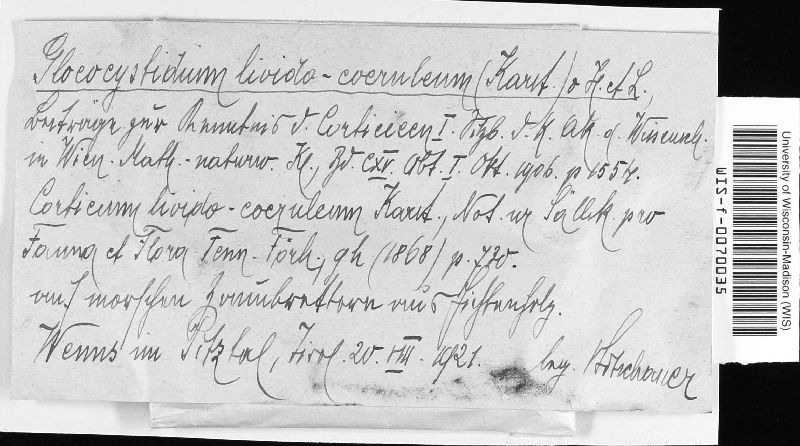 Gloeocystidium livido-coeruleum (Karst.) v H. et L.,
Beiträge zur Kenntnis d. Corticieen I. Sitzb. d. K. Ak. d. Wissensch.
in Wien. Math.-naturw. Kl., Bd. CXV. Abt. I. Okt. 1906. p 1554.
Corticium livido-coeruleum Karst., Not. ur Sällsk. pro
Fauna et Flora Fenn. Förh., 9h (1868) p. 370.
auf morschen Zaunbrettern aus Fichtenholz.
Wenns im Pitztal, Tirol. 20. VIII. 1921. leg.
WIS-F-0070035
University of Wisconsin-Madison (WIS)